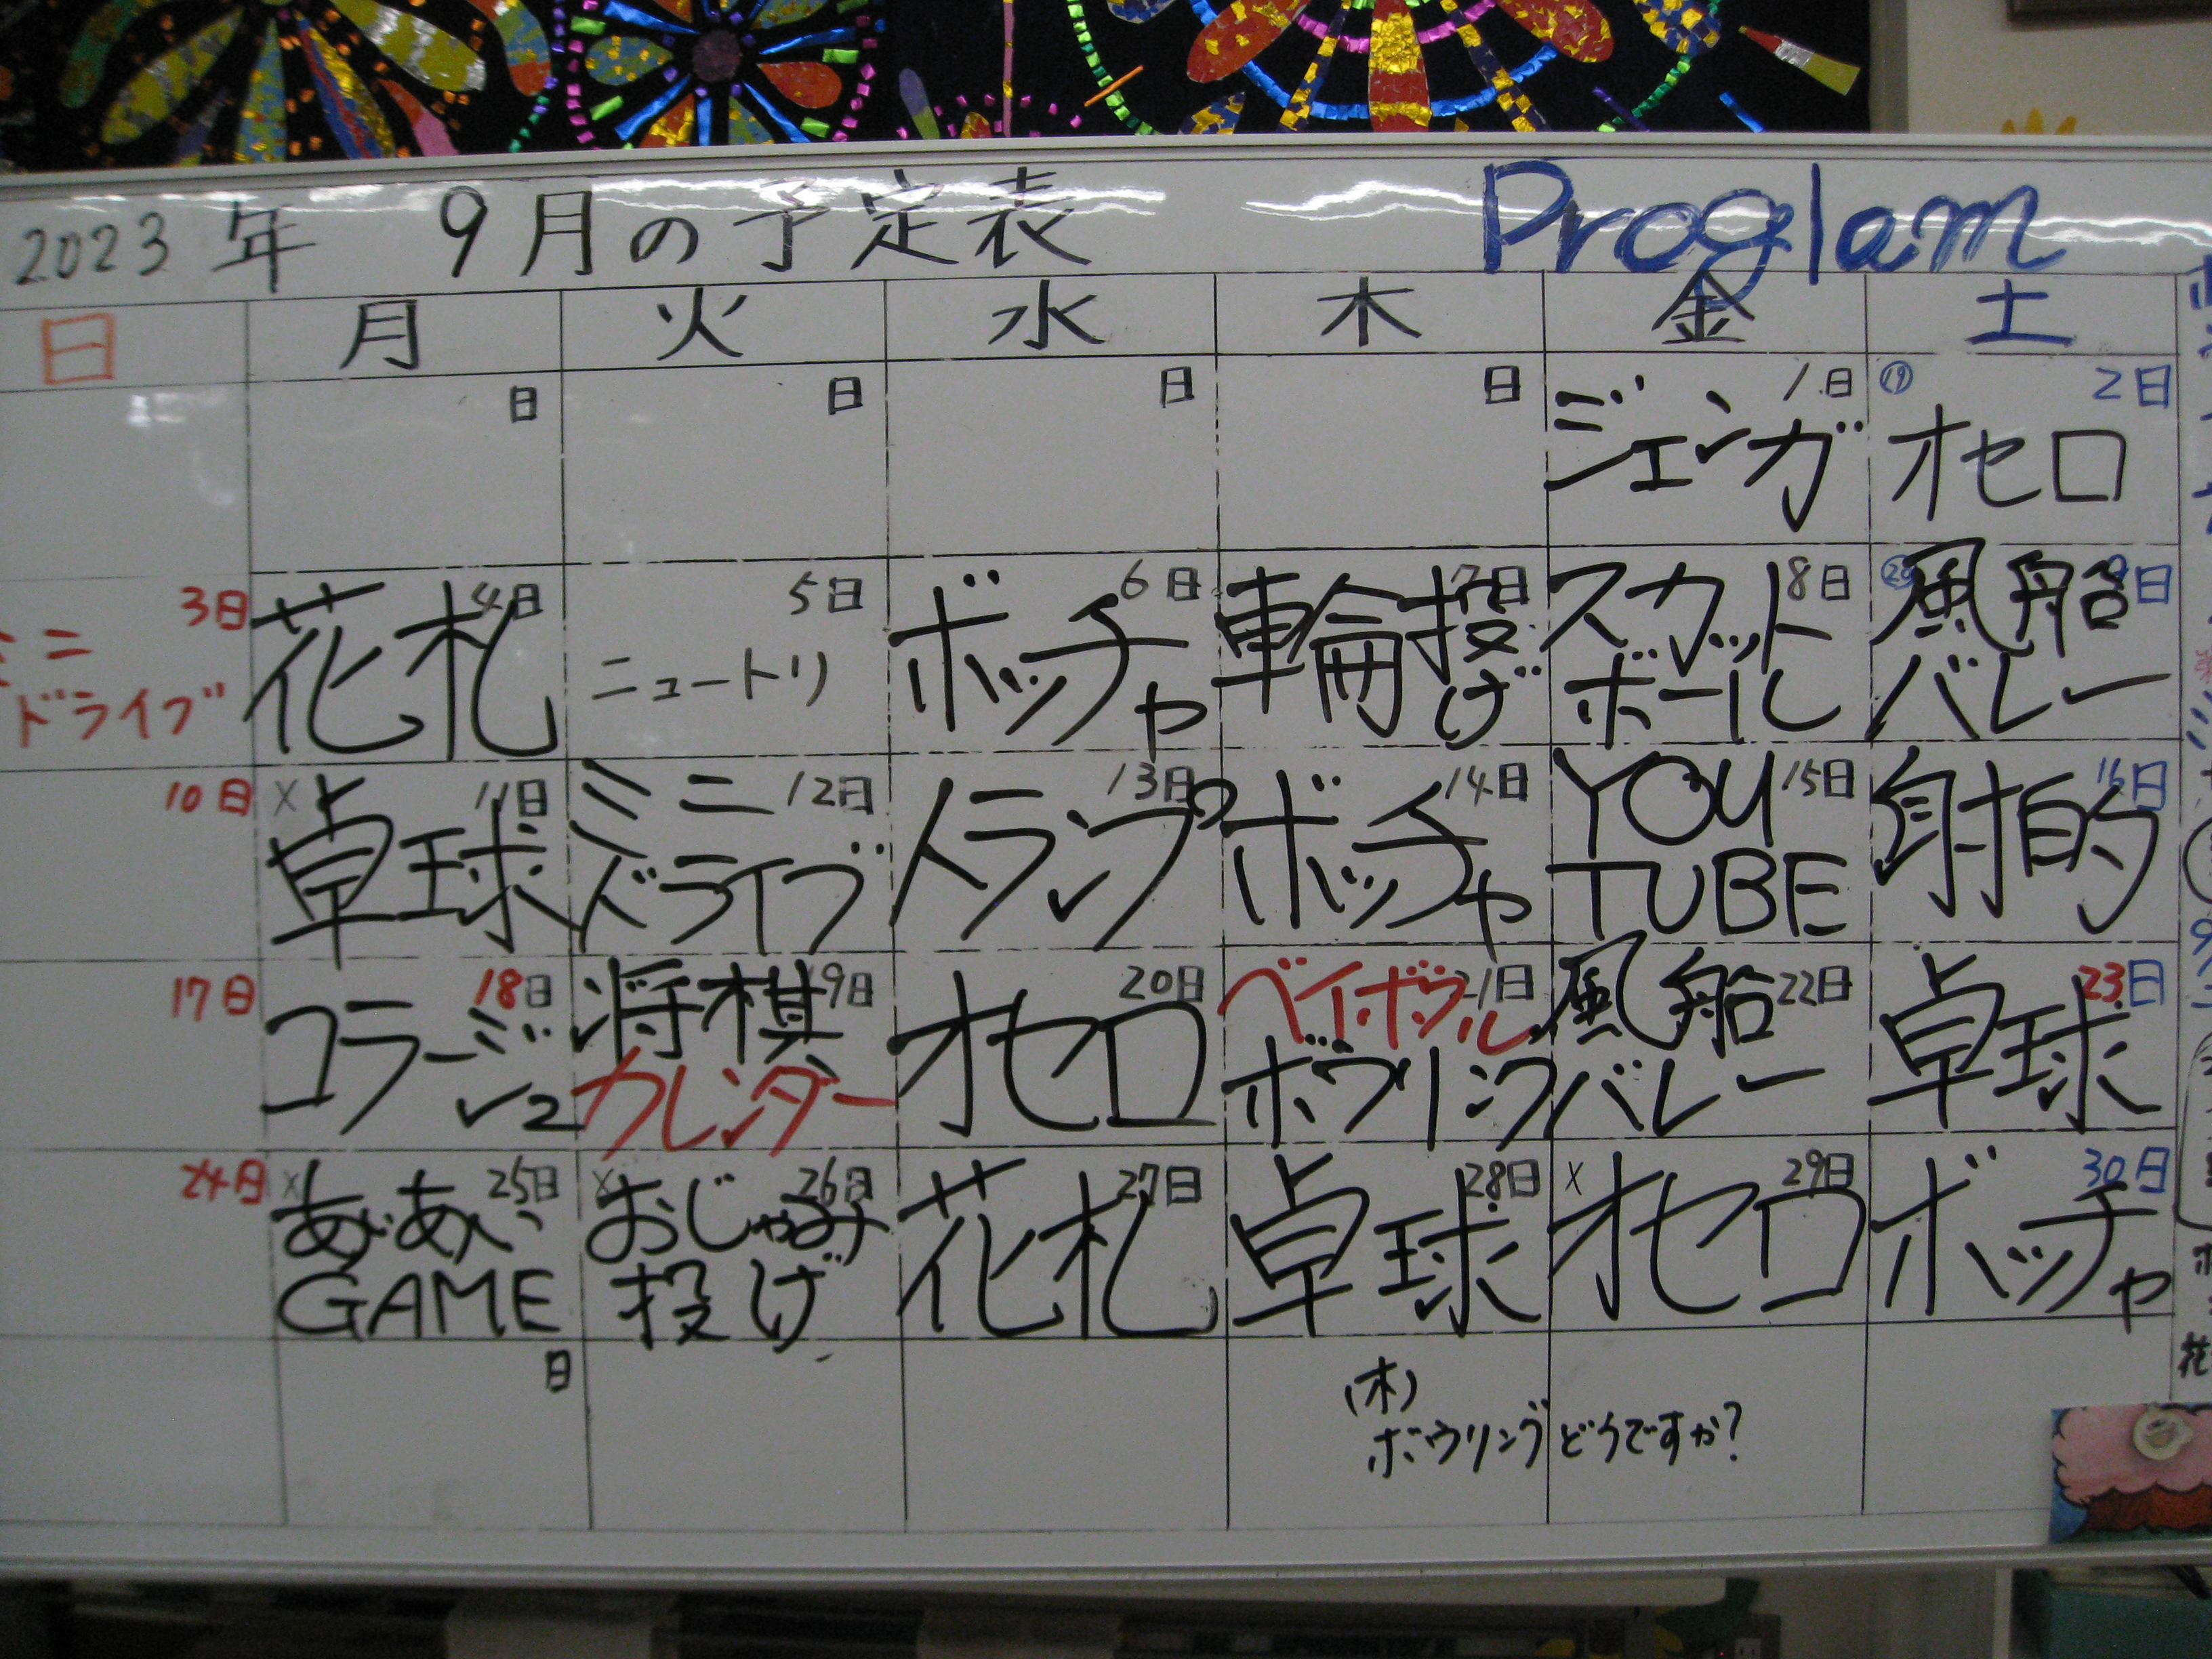 2023年 9月の予定表 Proglam
日 月 火 水 木 金 土
日 日 日 日 1日 ⑲ 2日
ジェンガ オセロ
3日 4日 5日 6日 7日 8日 ⑳ 9日
ミニ
ドライブ
花札
ニュートリ
ボッチャ
輪投げ
スカット
ボール
風船
バレー
10日 x 11日 12日 13日 14日 15日 16日
卓球
ミニ
ドライブ
トランプ
ボッチャ
YOU
TUBE
射的
17日 18日 19日 20日 21日 22日 23日
コラージュ
将棋
カレンダー
オセロ
ベイボウル
ボウリング
風船
バレー
卓球
24日 x 25日 x 26日 27日 28日 x 29日 30日
あいあい
GAME
おじゃみ
投げ
花札
卓球
オセロ
ボッチャ
日
(木)
ボウリングどうですか?